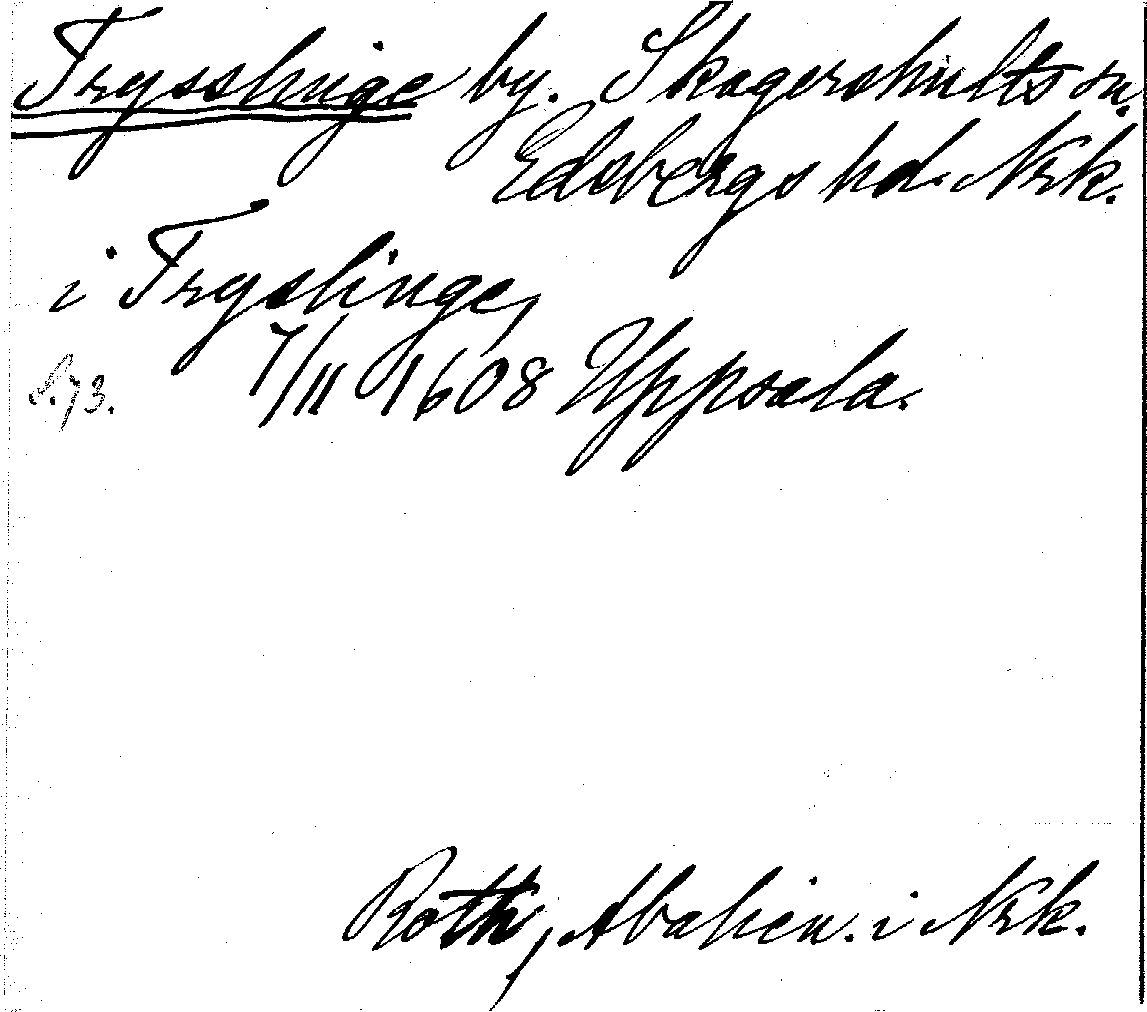 Trysslinge by. Skagershults sn.
Edsbergs hd. Nrk.
i Tryslinge,
S.73. 7/11 1608 Uppsala.
Roth, Abalien. i Nrk.